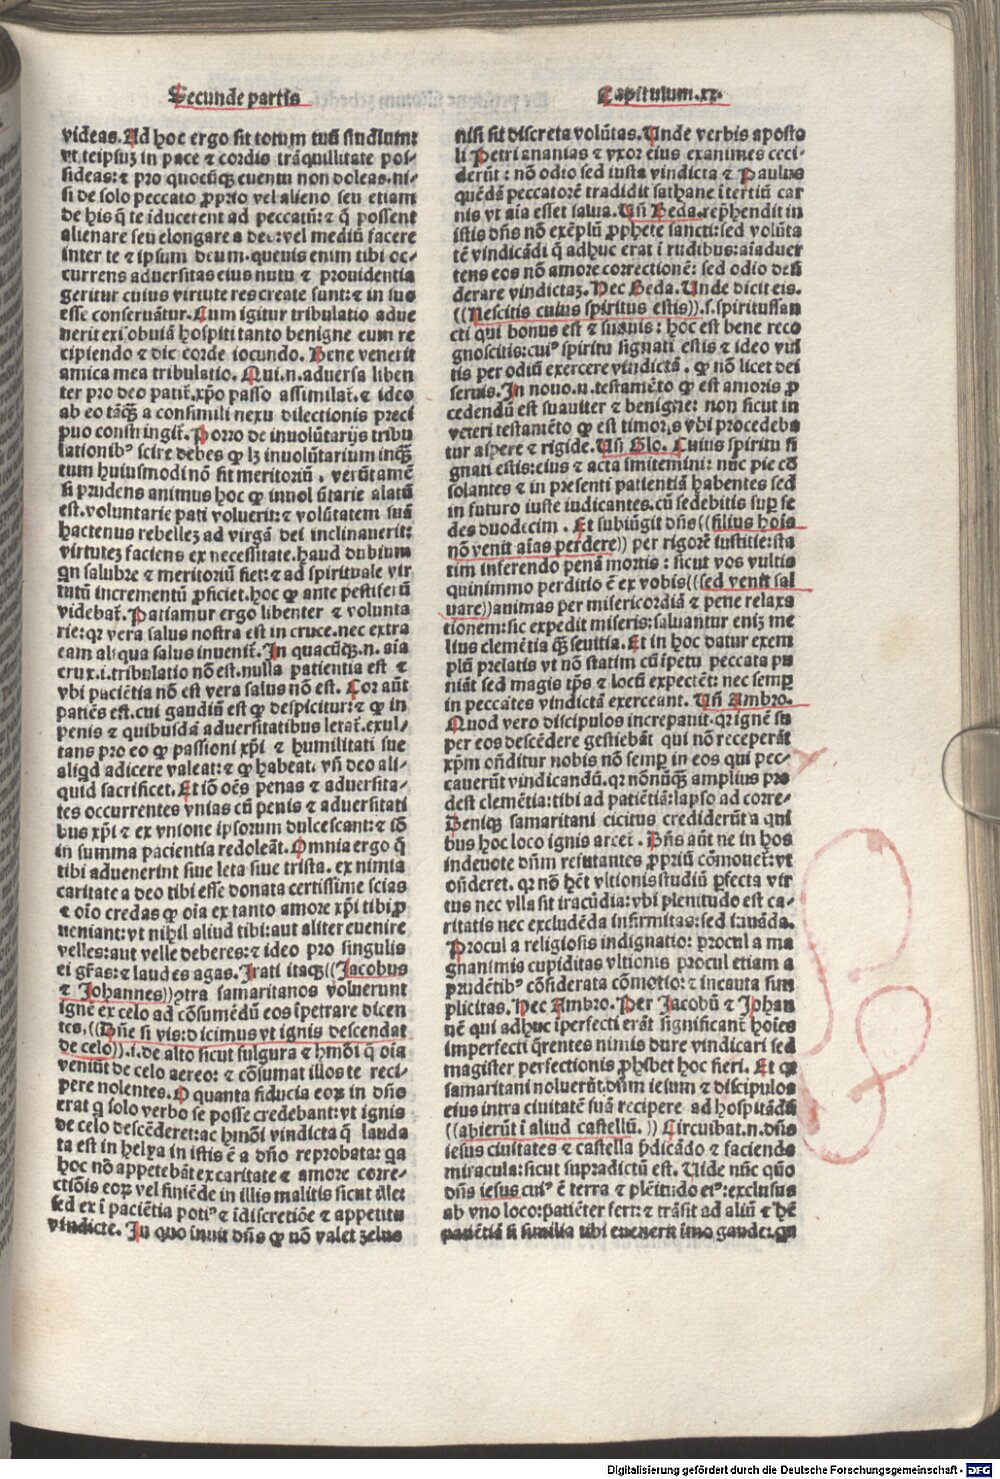 Secunde partis
Capitulum .xx.
videas. Ad hoc ergo sit totum tuū studium:
vt teipsuʒ in pace ⁊ cordis trāquillitate pos⸗
sideas: ⁊ pro quocūqʒ euentu non doleas. ni⸗
si de solo peccato ꝓprio vel alieno seu etiam
de his q̄ te īducerent ad peccatū: ⁊ q̄ possent
alienare seu elongare a deo: vel mediū facere
inter te ⁊ ipsum deum. quenis enim tibi oc⸗
currens aduersitas eius nutu ⁊ prouidentia
geritur cuius virtute res create sunt: ⁊ in suo
esse conseruātur. Cum igitur tribulatio adue
nerit exi obuiā hospiti tanto benigne eum re
cipiendo ⁊ dic corde iocundo. Bene venerit
amica mea tribulatio. Qui .n. aduersa liben
ter pro deo patit̄. xp̄o passo assimilat̄. ⁊ ideo
ab eo tāqʒ a consimili nexu dilectionis preci
puo constringit̄. Porro de inuolūtarijs tribu
lationibꝰ scire debes ꝙ lʒ inuolūtarium inqʒ
tum huiusmodi nō sit meritoriū. verūtamē
si prudens animus hoc ꝙ inuolūtarie alatū
est. voluntarie pati voluerit: ⁊ volūtatem suā
hactenus rebelleʒ ad virgā dei inclinauerit:
virtuteʒ faciens ex necessitate. haud dubium
qn salubre ⁊ meritoriū fiet: ⁊ ad spirituale vir
tutū incrementū ꝓficiet. hoc ꝙ ante pestiferū
videbat̄. Patiamur ergo libenter ⁊ volunta
rie: qꝛ vera salus nostra est in cruce. nec extra
eam aliqua salus inuenit̄. In quacūqʒ .n. aīa
crux .i. tribulatio nō est. nulla patientia est ⁊
vbi paciētia nō est vera salus nō est. Cor aūt
patiēs est. cui gaudiū est ꝙ despicitur: ⁊ ꝙ in
penis ⁊ quibusdā aduersitatibus letat̄. exul⸗
tans pro eo ꝙ passioni xp̄i ⁊ humilitati sue
aliqd adicere valeat: ⁊ ꝙ habeat. vn̄ deo ali⸗
quid sacrificet. Et iō oēs penas ⁊ aduersita⸗
tes occurrentes vnias cū penis ⁊ aduersitati
bus xp̄i ⁊ ex vnione ipsorum dulcescant: ⁊ iō
in summa pacientia redoleāt. Omnia ergo q̄
tibi aduenerint siue leta siue trista. ex nimia
caritate a deo tibi esse donata certissime scias
⁊ oīo credas ꝙ oīa ex tanto amore xp̄i tibi ꝓ
ueniant: vt nihil aliud tibi: aut aliter euenire
velles: aut velle deberes: ⁊ ideo pro singulis
ei gr̄as: ⁊ laudes agas. Irati itaqʒ ((Jacobus
⁊ Johannes)) ꝯtra samaritanos voluerunt
ignē ex celo ad cōsumēdū eos īpetrare dicen
tes. ((Dn̄e si vis: dicimus vt ignis descendat
de celo)) .i. de alto sicut fulgura ⁊ hmōi q̄ oīa
veniūt de celo aereo: ⁊ cōsumat illos te reci⸗
pere nolentes. O quanta fiducia eoꝝ in dn̄o
erat q solo verbo se posse credebant: vt ignis
de celo descēderet: ac hmōi vindicta q̄ lauda
ta est in helya in istis ē a dn̄o reprobata: qa
hoc nō appetebāt ex caritate ⁊ amore corre⸗
ctiōis eoꝝ vel finiēde in illis malitis sicut ille
sed ex ī paciētia potiꝰ ⁊ īdiscretiōe ⁊ appetitu
vindicte. In quo inuit dn̄s ꝙ nō valet zelus
nisi sit discreta volūtas. Unde verbis aposto
li Petri ananias ⁊ vxor eius exanimes ceci⸗
derūt: nō odio sed iusta vindicta ⁊ Paulus
quēdā peccatorē tradidit sathane ī teritū car
nis vt aīa esset salua. Un̄ Beda. rep̄hendit in
istis dn̄s nō exēplū ꝓphete sancti: sed volūta
tē vindicādi q̄ adhuc erat ī rudibus: aīaduer
tens eos nō amore correctionē: sed odio desi
derare vindictaʒ. Hec Beda. Unde dicit eis.
((Nescitis cuius spiritus estis)) .s. spiritussan
cti qui bonus est ⁊ suauis: hoc est bene reco
gnoscitis: cuiꝰ spiritu signati estis ⁊ ideo vul
tis per odiū exercere vindictā. ꝙ nō licet dei
seruis. In nouo .n. testamēto ꝙ est amoris ꝓ
cedendū est suauiter ⁊ benigne: non sicut in
veteri testamēto ꝙ est timoris vbi procedeba
tur aspere ⁊ rigide. Un̄ Glo. Cuius spiritu si
gnati estis: eius ⁊ acta imitemini: nūc pie cō
solantes ⁊ in presenti patientiā habentes sed
in futuro iuste iudicantes. cū sedebitis suꝑ se
des duodecim. Et subiūgit dn̄s ((filius hoīs
nō venit aīas perdere)) per rigorē iustitie: sta
tim inferendo penā mortis: sicut vos vultis
quinimmo perditio ē ex vobis ((sed venit sal
uare)) animas per misericordiā ⁊ pene relaxa
tionem: sic expedit miseris: saluantur eniʒ me
lius clemētia qʒ seuitia. Et in hoc datur exem
plū prelatis vt nō statim cū īpetu peccata pu
niāt sed magis tp̄s ⁊ locū expectēt: nec semꝑ
in peccātes vindictā exerceant. Un̄ Ambro.
Quod vero discipulos increpauit. qꝛ ignē su
per eos descēdere gestiebāt qui nō receperāt
xp̄m on̄ditur nobis nō semꝑ in eos qui pec⸗
cauerūt vindicandū. qꝛ nōnūqʒ amplius pro
dest clemētia: tibi ad patiētiā: lapso ad corre⸗
Deniqʒ samaritani cicitus crediderūt a qui
bus hoc loco ignis arcet̄. Dn̄s aūt ne in hos
indeuote dn̄m refutantes ꝓpriū cōmouet̄: vt
on̄deret. qꝛ nō hēt vltionis studiū ꝑfecta vir
tus nec vlla sit iracūdia: vbi plenitudo est ca⸗
ritatis nec excludēda infirmitas: sed iuuāda.
Procul a religiosis indignatio: procul a ma
gnanimis cupiditas vltionis procul etiam a
prudētibꝰ cōsiderata cōmotio: ⁊ incauta sim
plicitas. Hec Ambro. Per Jacobū ⁊ Johan
nē qui adhuc īperfecti erāt significant̄ hoīes
imperfecti q̄rentes nimis dure vindicari sed
magister perfectionis ꝓhibet hoc fieri. Et qꝛ
samaritani noluerūt. dn̄m iesum ⁊ discipulos
eius intra ciuitatē suā recipere ad hospitādū
((abierūt ī aliud castellū.)) Circuibat .n. dn̄s
iesus ciuitates ⁊ castella p̄dicādo ⁊ faciendo
miracula: sicut supradictū est. Uide nūc quō
dn̄s iesus cuiꝰ ē terra ⁊ plēitudo eiꝰ: exclusus
ab vno loco: patiēter fert: ⁊ trāsit ad aliū ⁊ hē
patiētiā si similia tibi euenerit imo gaude: qn
Digitalisierung gefördert durch die Deutsche Forschungsgemeinschaft - DFG